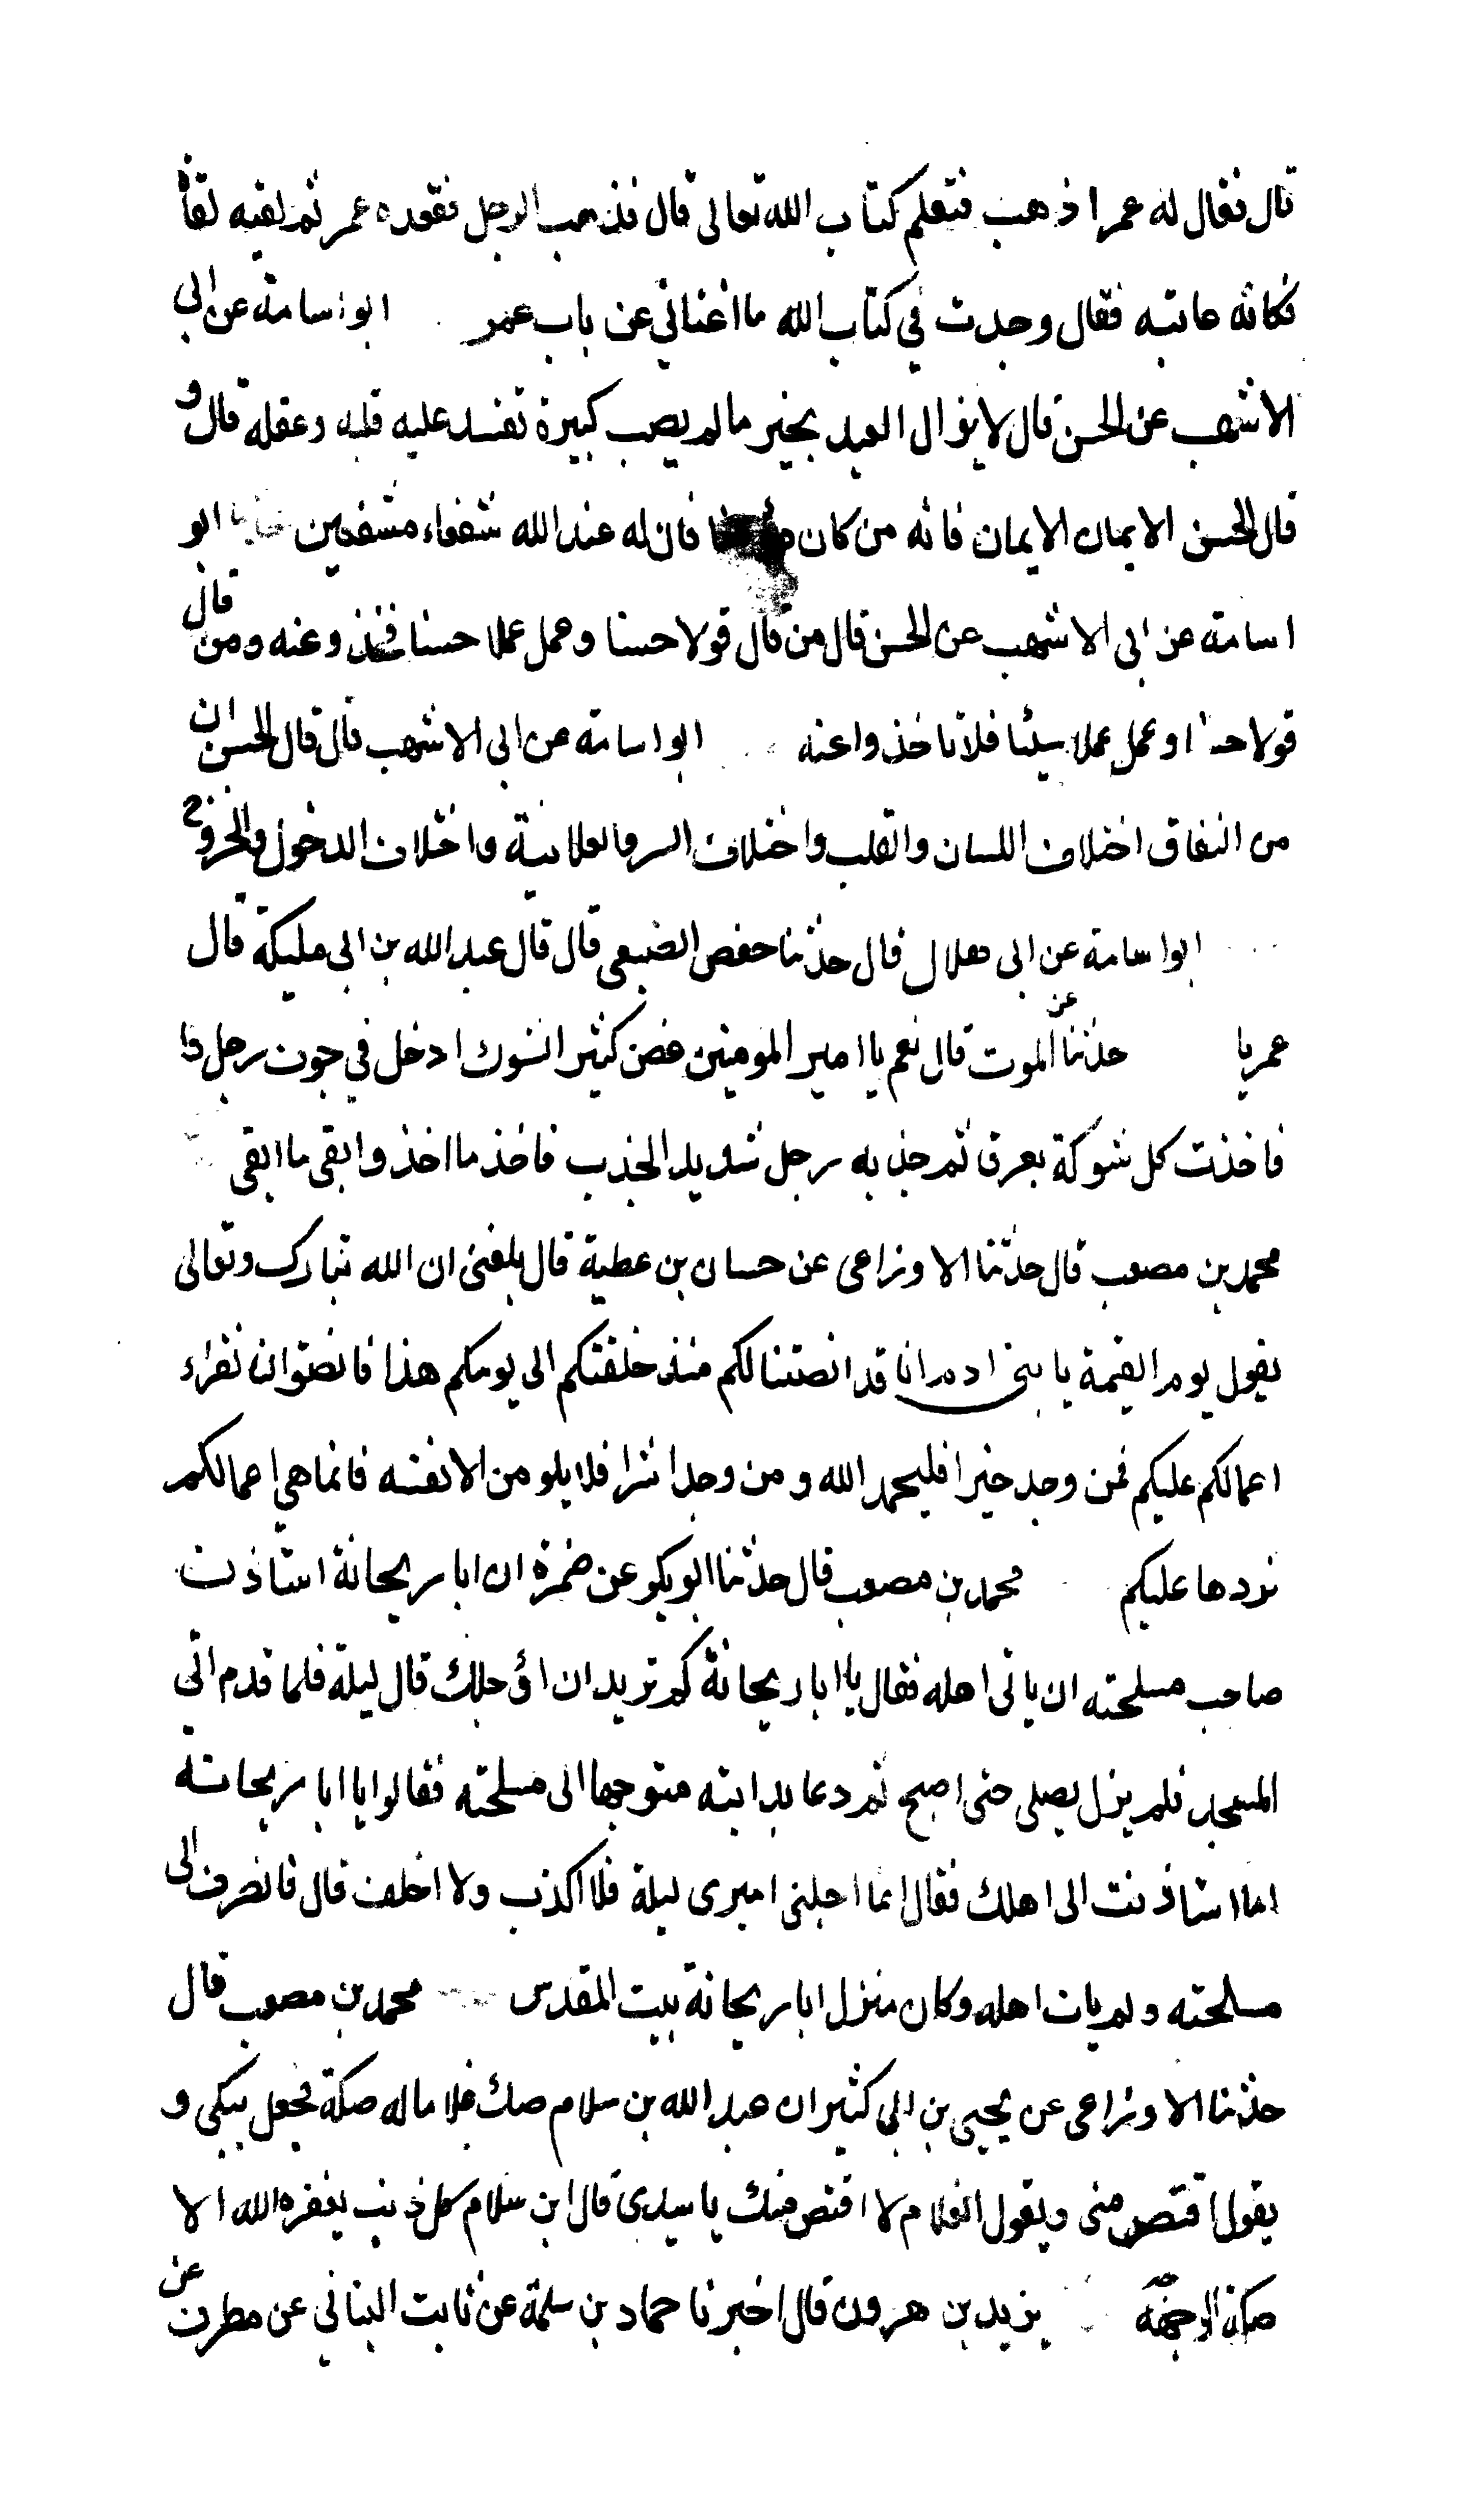 قال فقال له عمر اذهب فتعلم كتاب الله تعالى قال فذهب الرجل ففقده عمر ثم لقيه لقأ
فكانه عاتبه فقال وجدت في كتاب الله ما اغناني عن باب عمر ابو اسامة عن ابي
الاشهب عن الحسن قال لا يزال العبد بخير ما لم يصب كبيرة تفسد عليه قلبه وعقله قال و
قال الحسن الايمان الايمان فانه من كان مؤمنا فان له عند الله شفعاء مشفعين ابو
اسامة عن ابي الاشهب عن الحسن قال من قال قولا حسنا وعمل عملا حسنا فخذوعنه ومن قال
قولا حسنا وعمل عملا سيئا فلا تاخذوا عنه ابو اسامة عن ابي الاشهب قال قال الحسن ان
من النفاق اختلاف اللسان والقلب واختلاف السر والعلانية واختلاف الدخول والخروج
ابو اسامة عن ابي هلال قال حدثنا حفص الضبعي قال قال عبد الله بن ابي مليكة قال
عمر يا حدثنا عن الموت قال نعم يا امير المومنين غصن كثير الشوك ادخل في جوف رجل فا
فاخذت كل شوكة بعرق ثم جذبه رجل شديد الجذب فاخذ ما اخذ وابقى ما ابقى
محمد بن مصعب قال حدثنا الاوزاعى عن حسان بن عطية قال بلغنى ان الله تبارك وتعالى
يقول يوم القيمة يا بني ادم انا قد انصتنا لكم منذ خلقتكم الى يومكم هذا فانصتوا لنا نقراء
اعمالكم عليكم فمن وجد خيرا فليحمد الله ومن وجد شرا فلا يلومن الا نفسه فانما هي اعمالكم
نردها عليكم محمد بن مصعب قال حدثنا ابو بكر عن ضمرة ان ابا ريحانة استاذن
صاحب مسلحته ان ياتى اهله فقال يا ابا ريحانة كم تريد ان اؤجلك قال ليلة فلما قدم اتى
المسجد فلم يزل يصلى حتى اصبح ثم دعا بدابته متوجها الى مسلحته فقالوا يا ابا ريحانة
اما استاذنت الى اهلك فقال انما اجلنى اميرى ليلة فلا اكذب ولا اخلف قال فانصرف الى
مسلحته ولم يات اهله وكان منزل ابا ريحانة ببيت المقدس محمد بن مصعب قال
حدثنا الاوزاعى عن يحيى بن ابي كثير ان عبد الله بن سلام صك غلاما له صكة فجعل يبكى و
يقول اقتص منى ويقول الغلام لا اقتص منك يا سيدى قال ابن سلام كل ذنب يغفره الله الا
صكة الوجه يزيد بن هرون قال اخبرنا حماد بن سلمة عن ثابت البناني عن مطرف عن